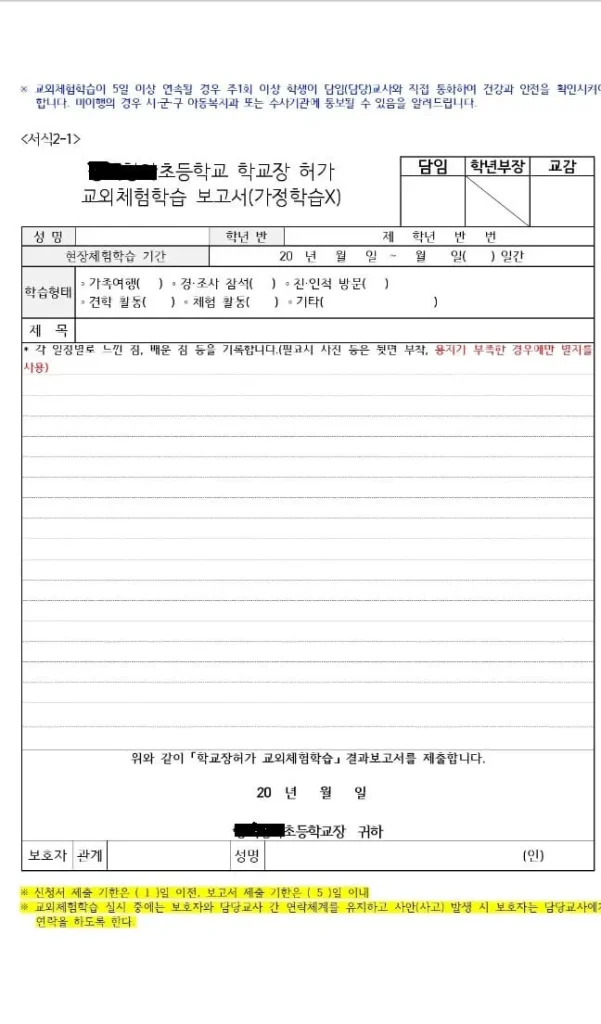 ※ 교외체험학습이 5일 이상 연속될 경우 주1회 이상 학생이 담임(담당)교사와 직접 통화하여 건강과 안전을 확인시켜야
합니다. 미이행의 경우 시·군·구 아동복지과 또는 수사기관에 통보될 수 있음을 알려드립니다.
<서식2-1>
초등학교 학교장 허가
교외체험학습 보고서(가정학습X)
담임 학년부장 교감
성 명 학년 반 제 학년 반 번
현장체험학습 기간 20 년 월 일 ~ 월 일( ) 일간
학습형태
◦가족여행( ) ◦경·조사 참석( ) ◦친·인척 방문( )
◦견학 활동( ) ◦체험 활동( ) ◦기타( )
제 목
* 각 일정별로 느낀 점, 배운 점 등을 기록합니다.(필요시 사진 등은 뒷면 부착, 용지가 부족한 경우에만 별지를
사용)
위와 같이 「학교장허가 교외체험학습」 결과보고서를 제출합니다.
20 년 월 일
초등학교장 귀하
보호자 관계 성명 (인)
※ 신청서 제출 기한은 ( 1 )일 이전, 보고서 제출 기한은 ( 5 )일 이내
※ 교외체험학습 실시 중에는 보호자와 담당교사 간 연락체계를 유지하고 사안(사고) 발생 시 보호자는 담당교사에게
연락을 하도록 한다